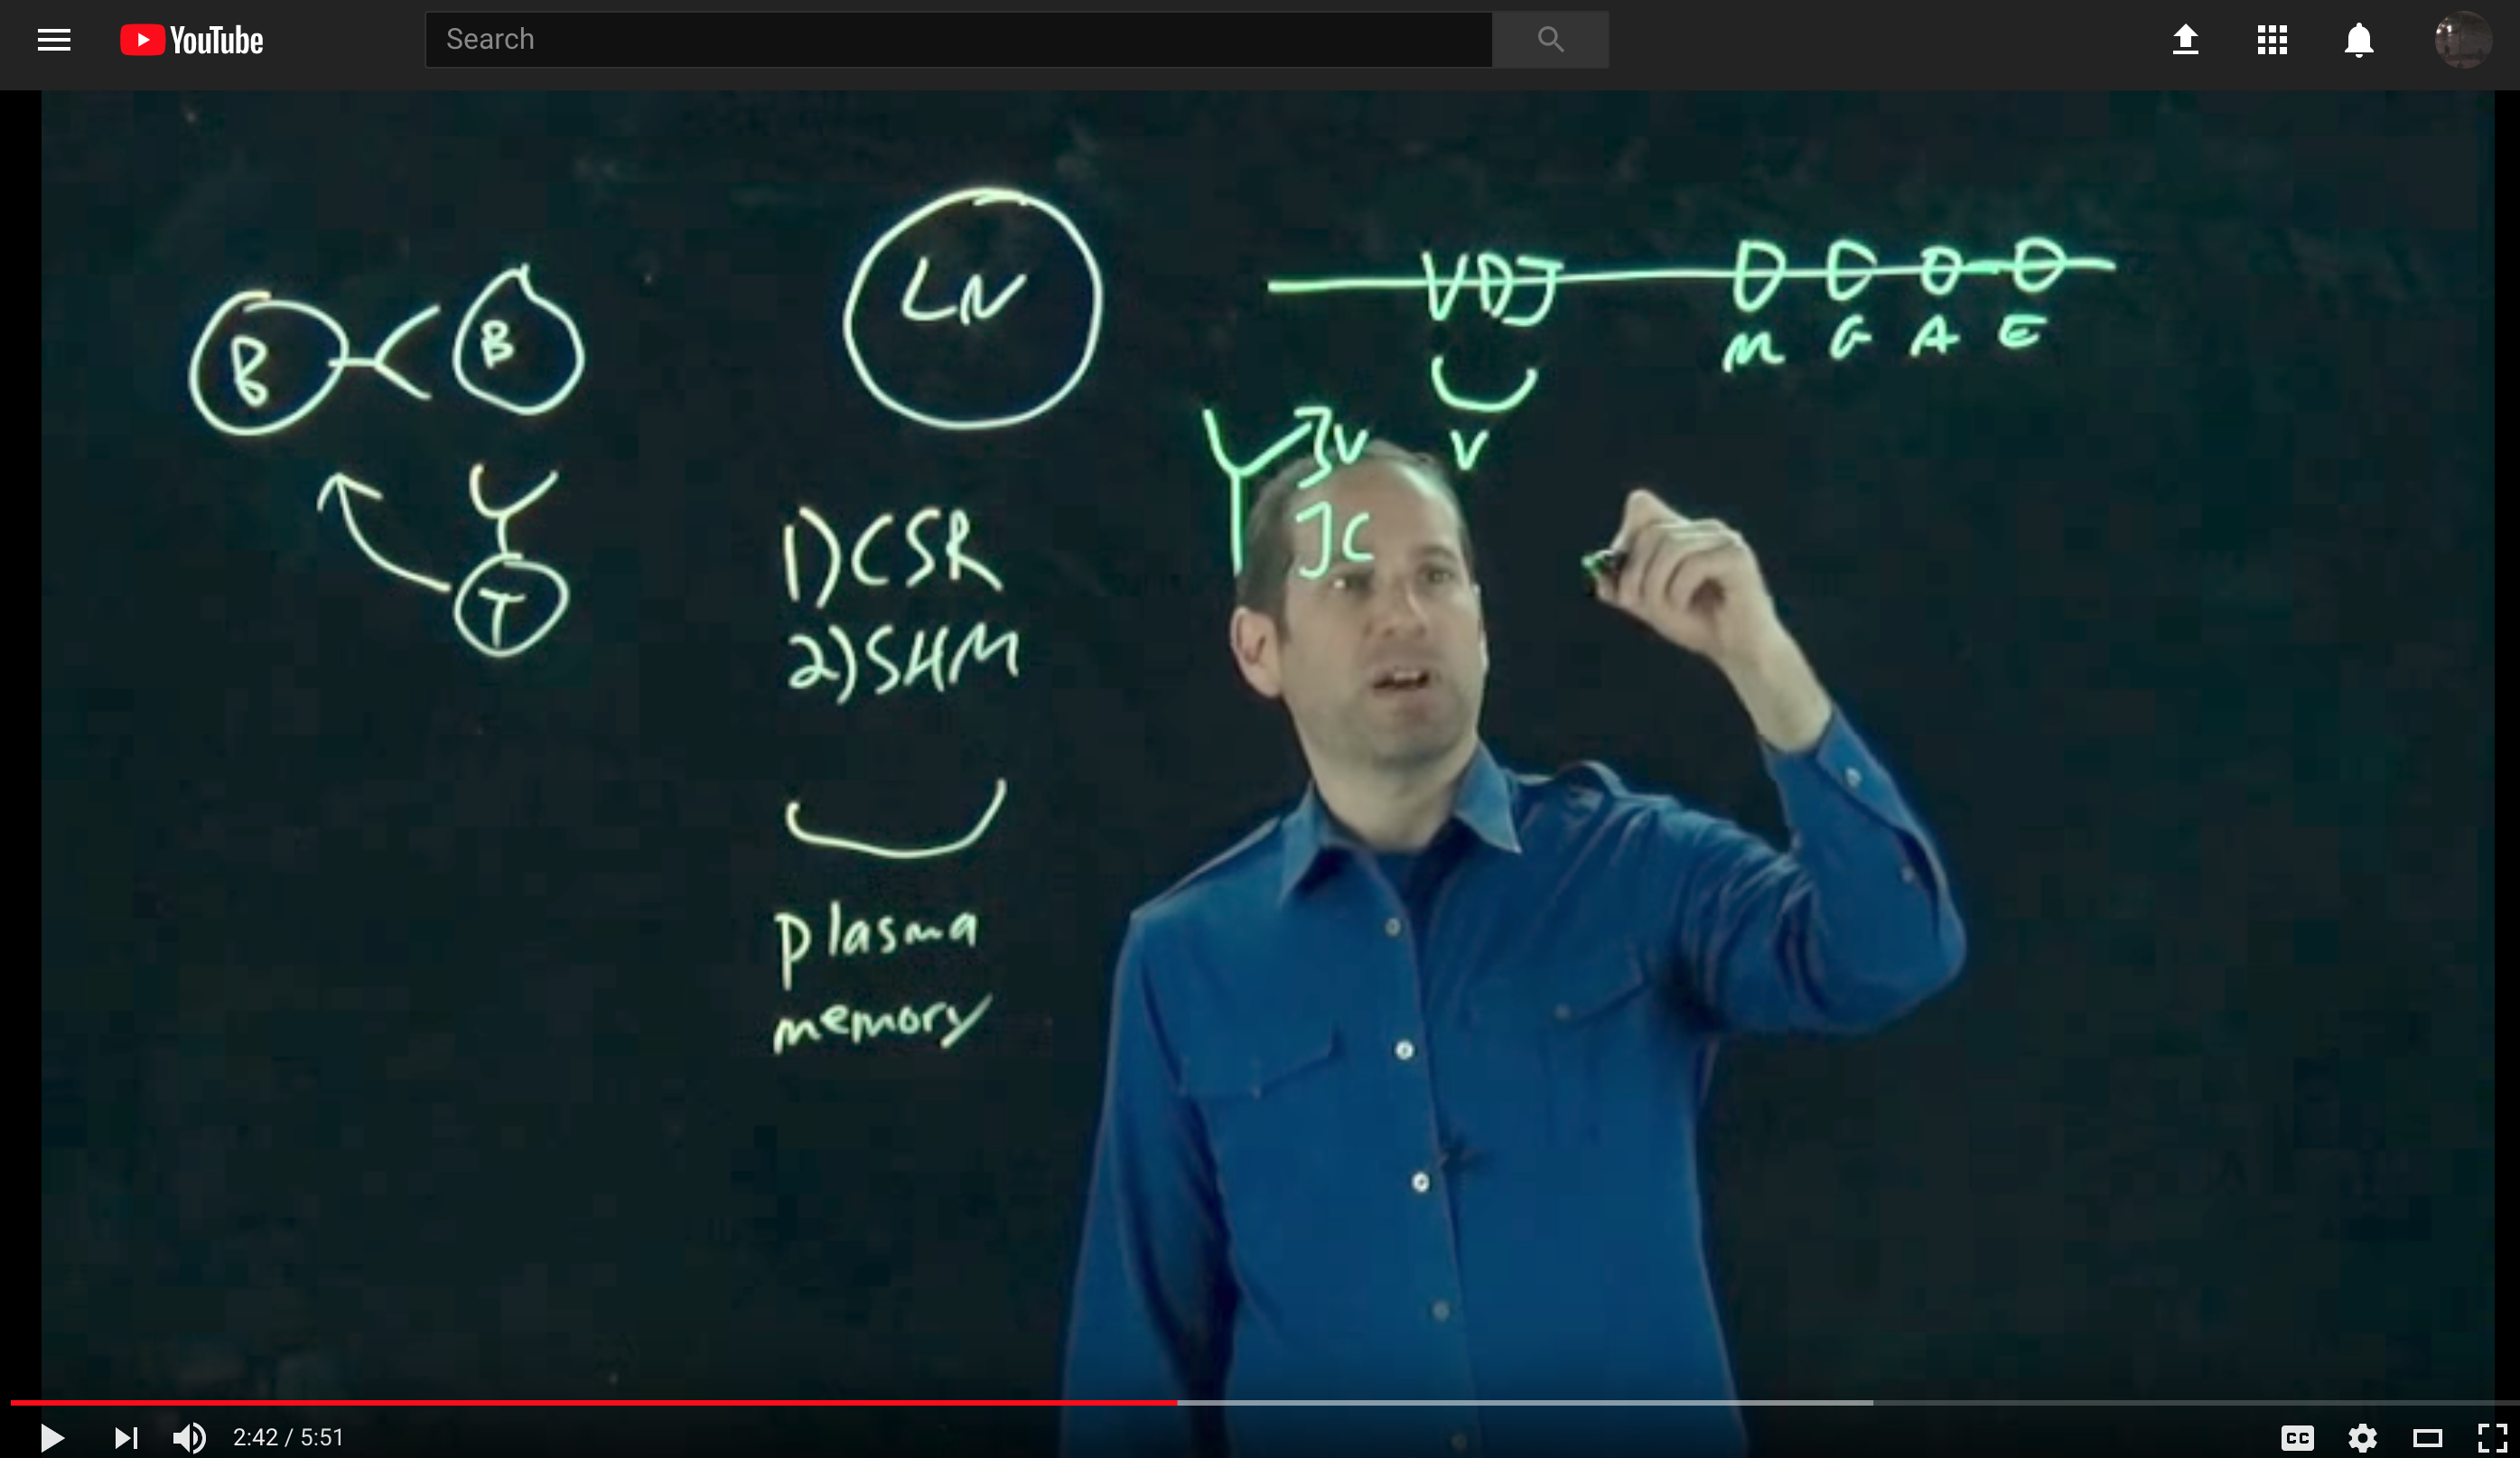 YouTube
Search
B
B
T
LN
1) CSR
2) SHM
plasma
memory
VDJ
M G A E
V
V
C
2:42 / 5:51
CC